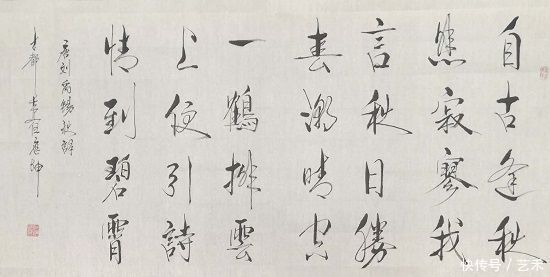 自古逢秋
悲寂寥我
言秋日勝
春潮晴空
一鶴排雲
上便引詩
情到碧霄
唐刘禹錫秋辞
快传号/艺术